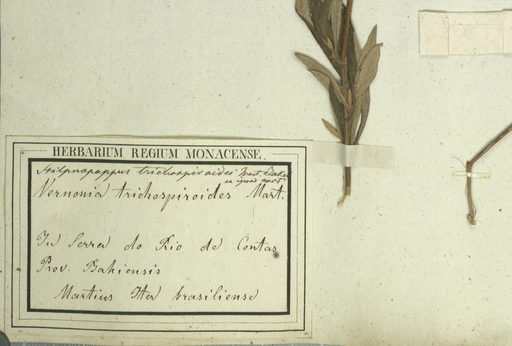 HERBARIUM REGIUM MONACENSE.
Stilpnopappus trichospiroides Mart.
Vernonia trichospiroides Mart.
In Serra do Rio de Contas
Prov. Bahiensis
Martius Iter brasiliense